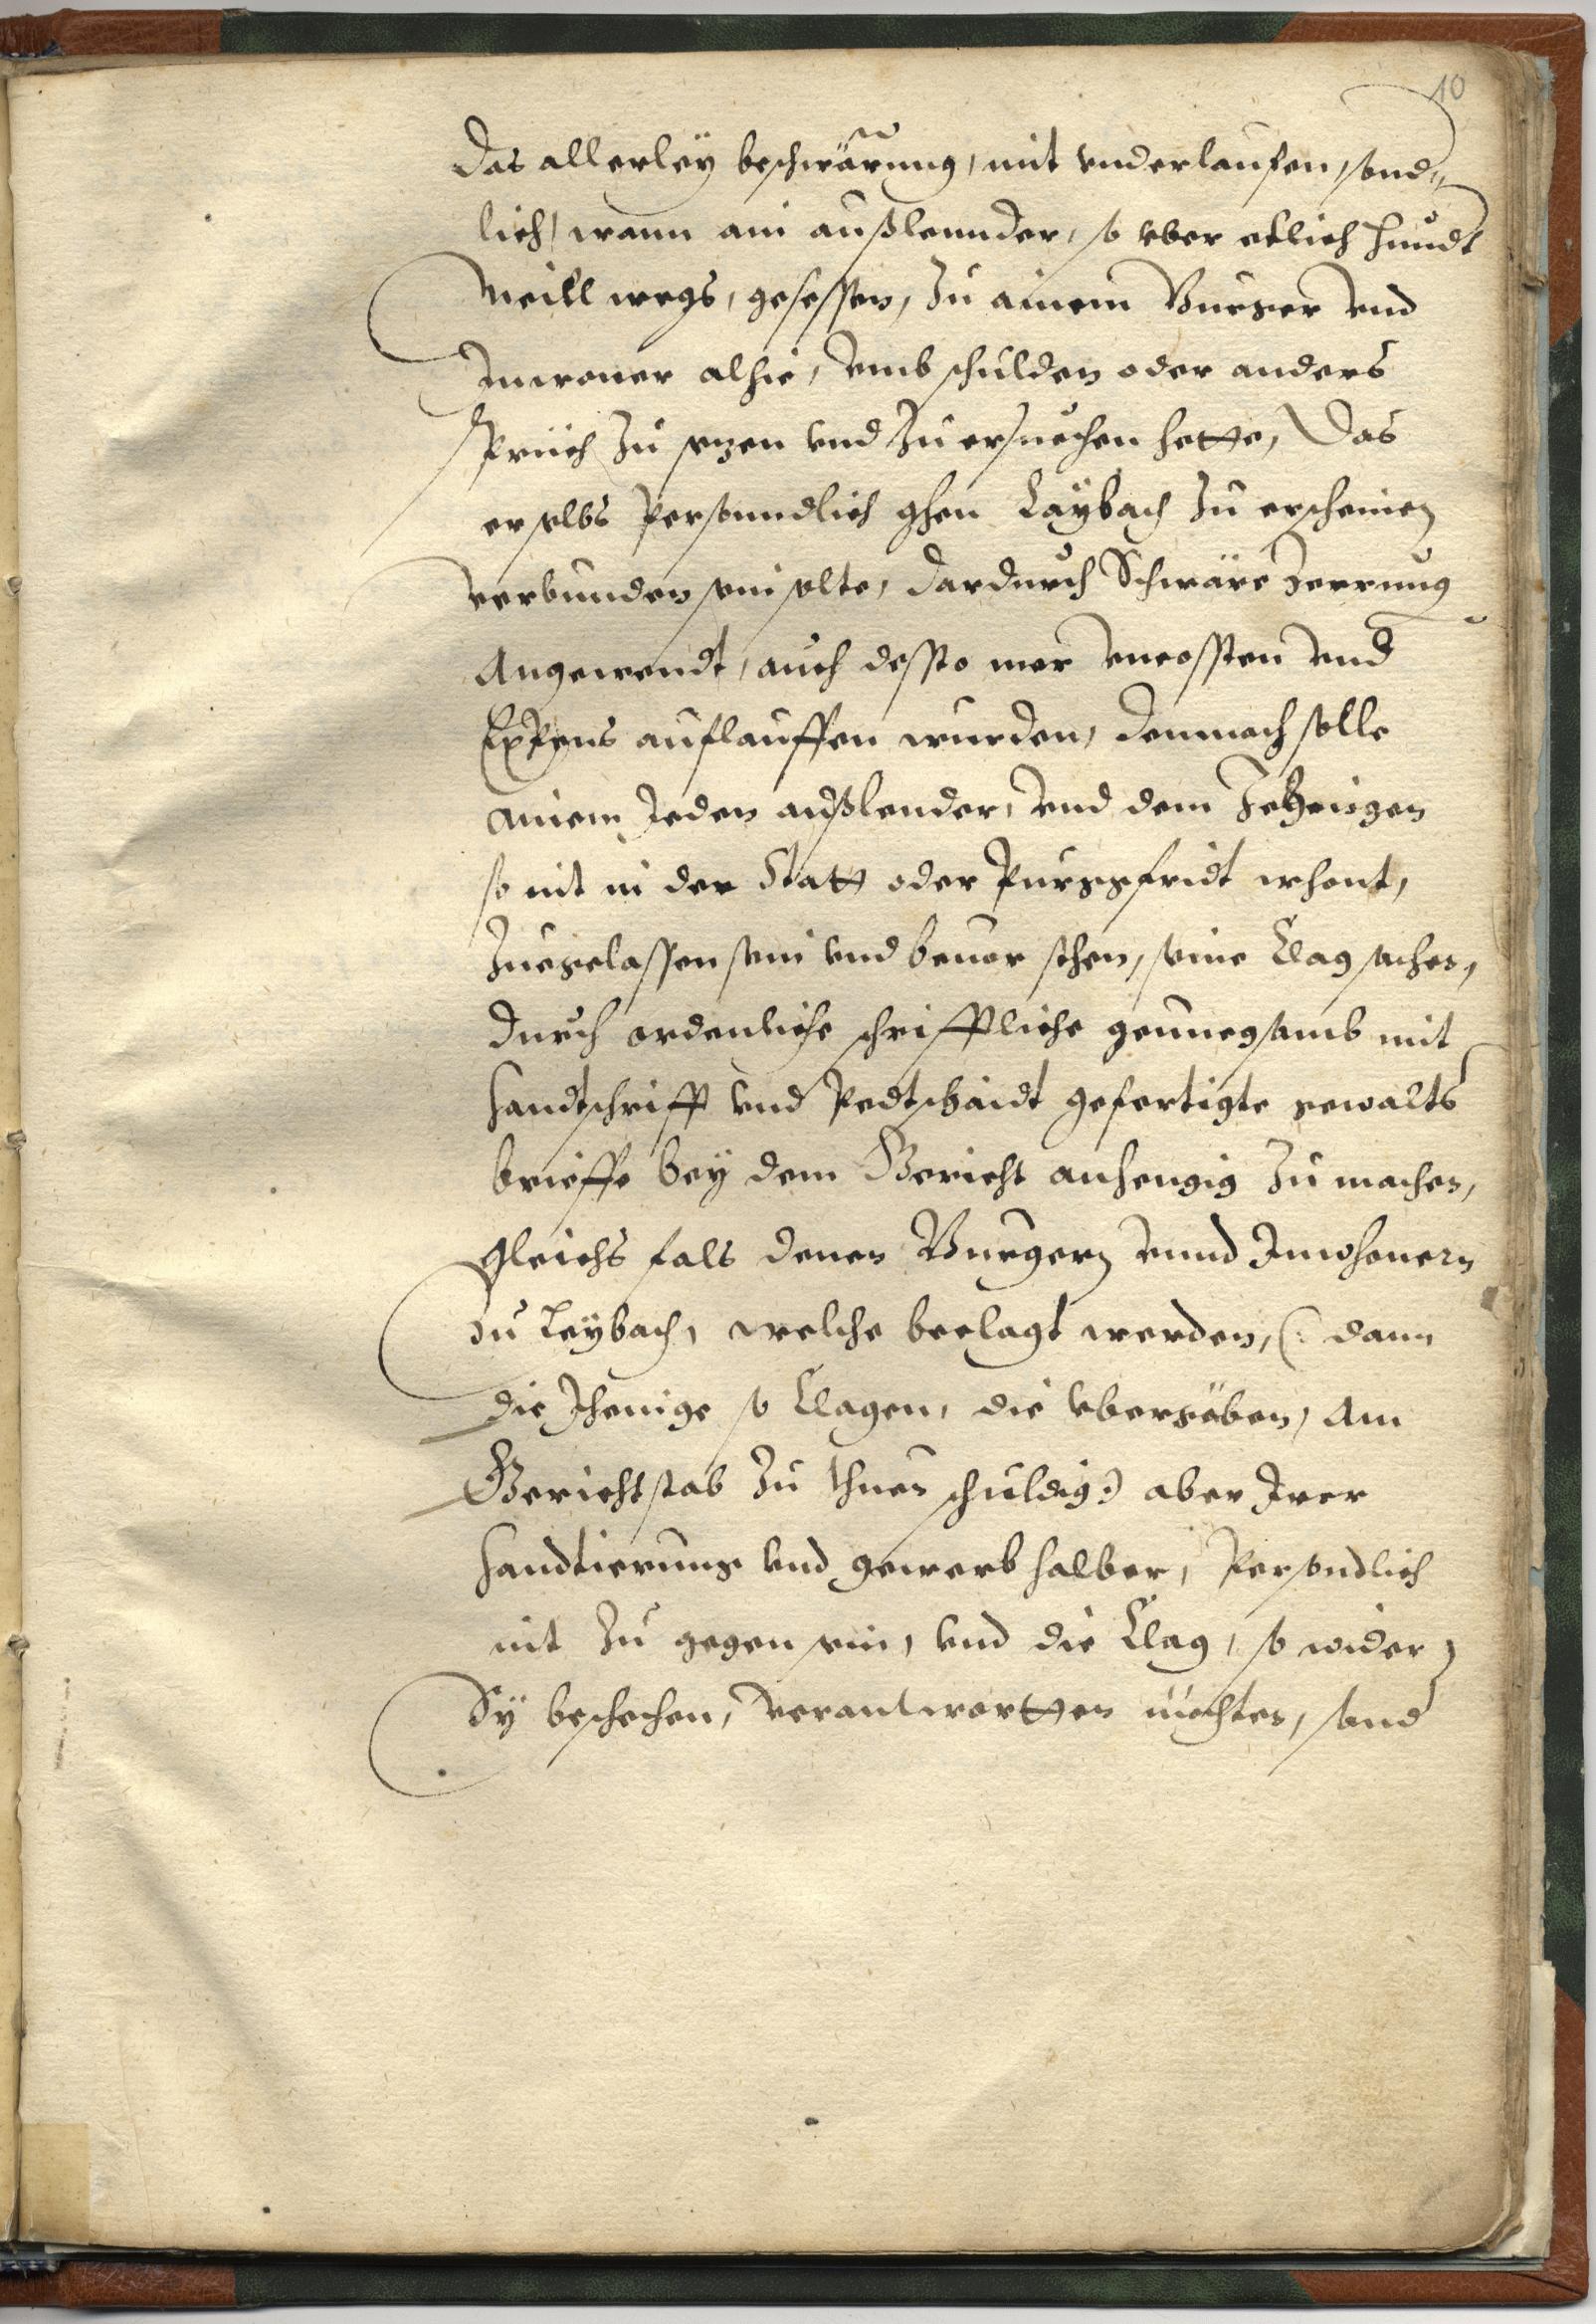 10
Das allerleÿ beschwärung, mit vnderlaufen, sond„
lich, wann ain außlennder, so vber etlich hundt
Meill wegs, gesessen, zu ainem Burger vnd
Inwoner alhie, vmb schulden oder anders
sprüch zu sezen vnd zu ersuechen hette, Das
er selbs Personndlich ghen Laÿbach zu erscheinen
verbunden sein solte, dardurch Schwäre Zerrung
Angewendt, auch dessto mer vncossten vnd
Expens aufflauffen wurden, demnach solle
ainem Jeden außlender, vnd dem Jehenigen
so nit in der Statt oder Purgsfridt whont,
Zuegelassen sein vnd beuor stehen, seine Clag sachen,
durch ordenliche schrifftliche genuegsamb mit
handtschrifft vnd Pedtschaidt gefertigte gewalts
brieffe beÿ dem Gericht anhengig zu machen,
gleichs fals denen Burgern vnnd Inwhonern
zu Leÿbach, welche beclagt werden, (: dann
die Jhenige so Clagen, die vbergäben, Am
Gerichtstab zu thuen schuldig :) aber Irer
handtierung vnd gewerb halber, Persondlich
nit zu gegen sein, vnd die Clag, so wider
Sÿ beschechen, verantwortten mechten, sond